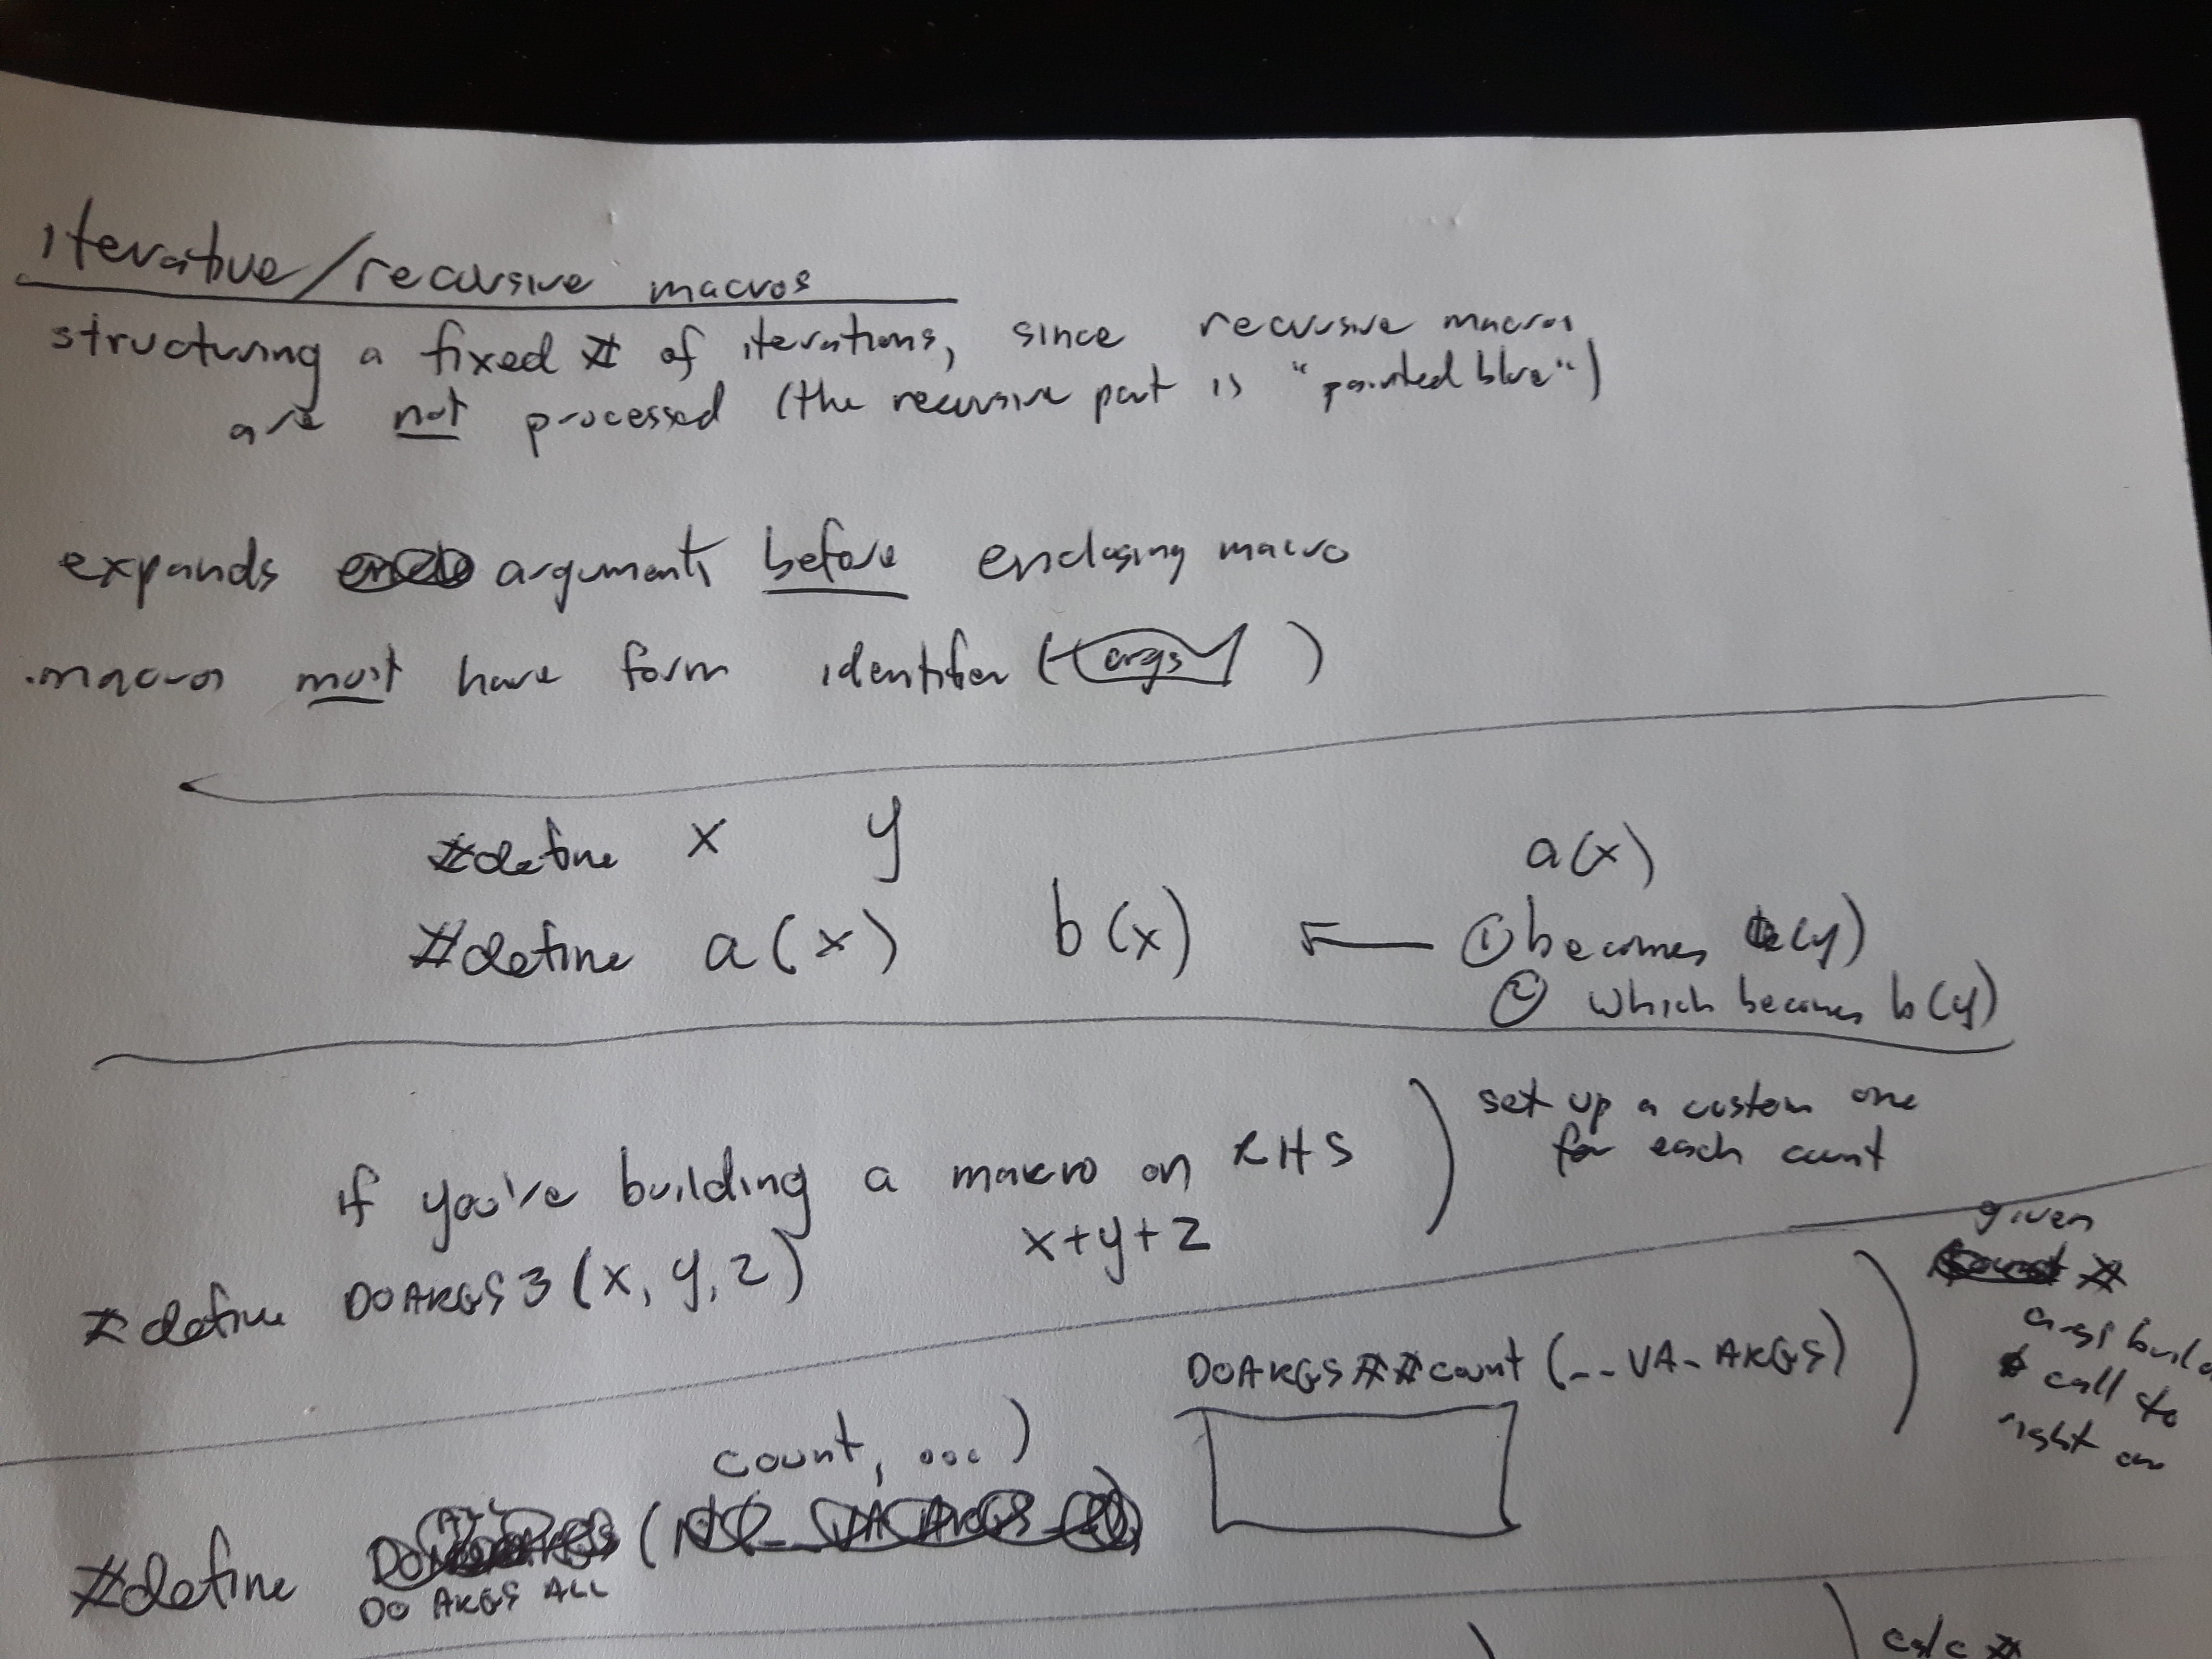 iterative/recursive macros
structuring a fixed # of iterations, since recursive macros
are not processed (the recursive part is "painted blue")
expands arguments before enclosing macro
macros must have form identifier (args)
#define x y
a(x)
#define a(x) b(x)
① becomes a(y)
② which becomes b(y)
set up a custom one
for each count
if you're building a makro on RHS
#define DOARGS3(x, y, z) x+y+z
given
#
args build
call to
right on
DOARGS##count(__VA_ARGS)
count, ...)
#define (
DO ARGS ALL
calc #